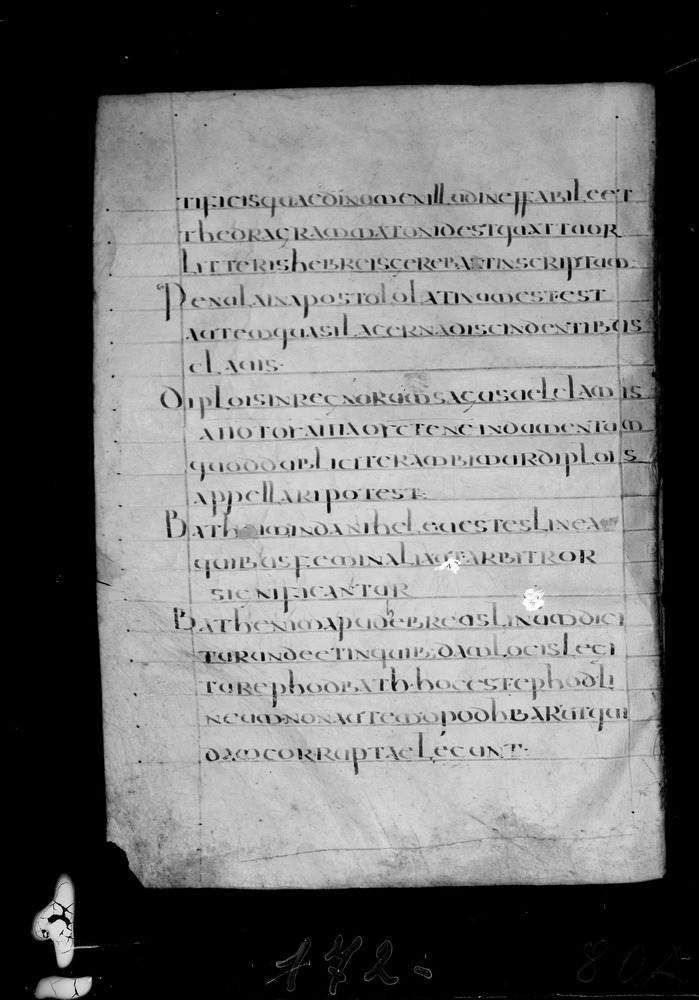 tificis quae dinomexillud ineffabile et
thedragrammaton id est quattuor
litteris hebreis gerebat inscriptum
Penula in apostolo latinum est est
autem quasi lacerna discindentibus
clauis
Diplois in regnorum saga sael clam is
quod dubliciter ambimur diplois
appellari potest
Bath in danihel e uestes linea
quibus feminalia ut arbitror
significantur
Bath enim apud ebreus linum dici
tur unde et in quibusdam locis legi
tur ephod bath hoc est ephod li
neum non autem opodh bar ut qui
dam corrupta elegunt
172
802